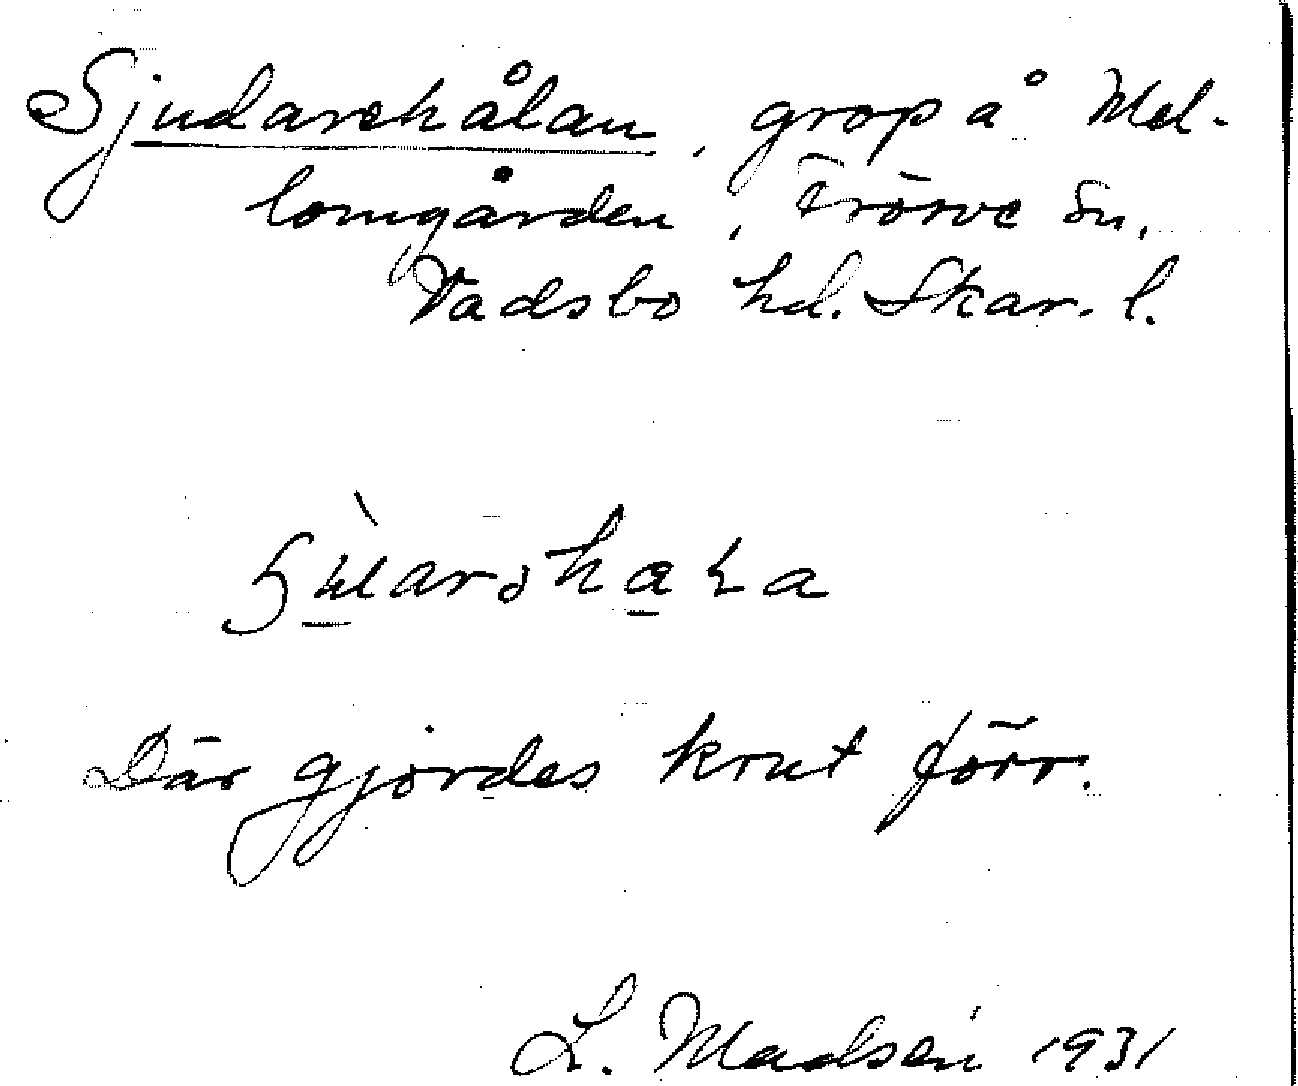 Sjudarehålan, grop å Mel-
lomgården, Trösve Sn,
Vadsbo hd. Skar. l.
Där gjordes krut förr.
L. Madsén 1931